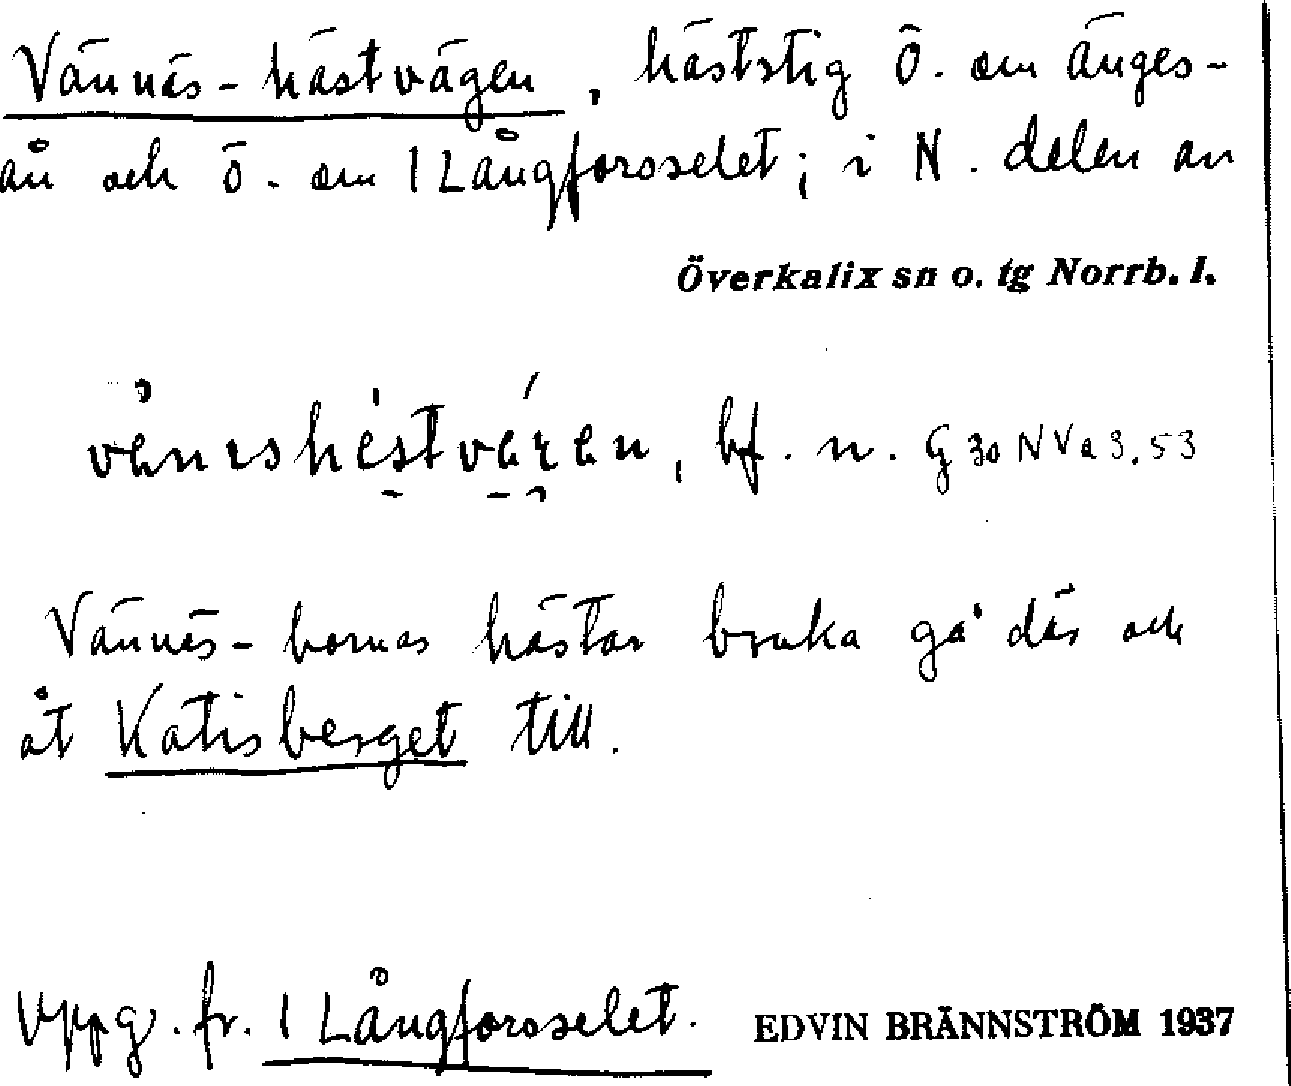 Vännäs-hästvägen, häststig Ö. om Änges-
ån och Ö. om 1 Långforsselet; i N. delen av
Överkalix sn o. tg Norrb. l.
bf. n. G 30 NV a 3.53
Vännäs-bornas hästar bruka gå där och
åt Katisberget till.
Uppg. fr. 1 Långforsselet. EDVIN BRÄNNSTRÖM 1937